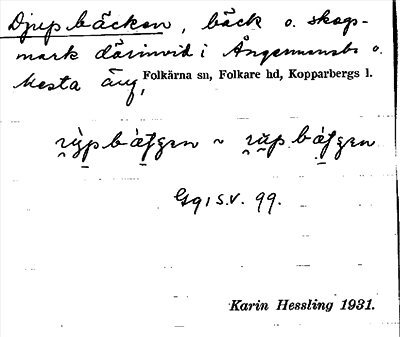 Djupbäcken, bäck o. skogs-
mark därinvid i Ångermansbo o.
Mesta äng,
Folkärna sn, Folkare hd, Kopparbergs l.
S.V. 99.
Karin Hessling 1931.